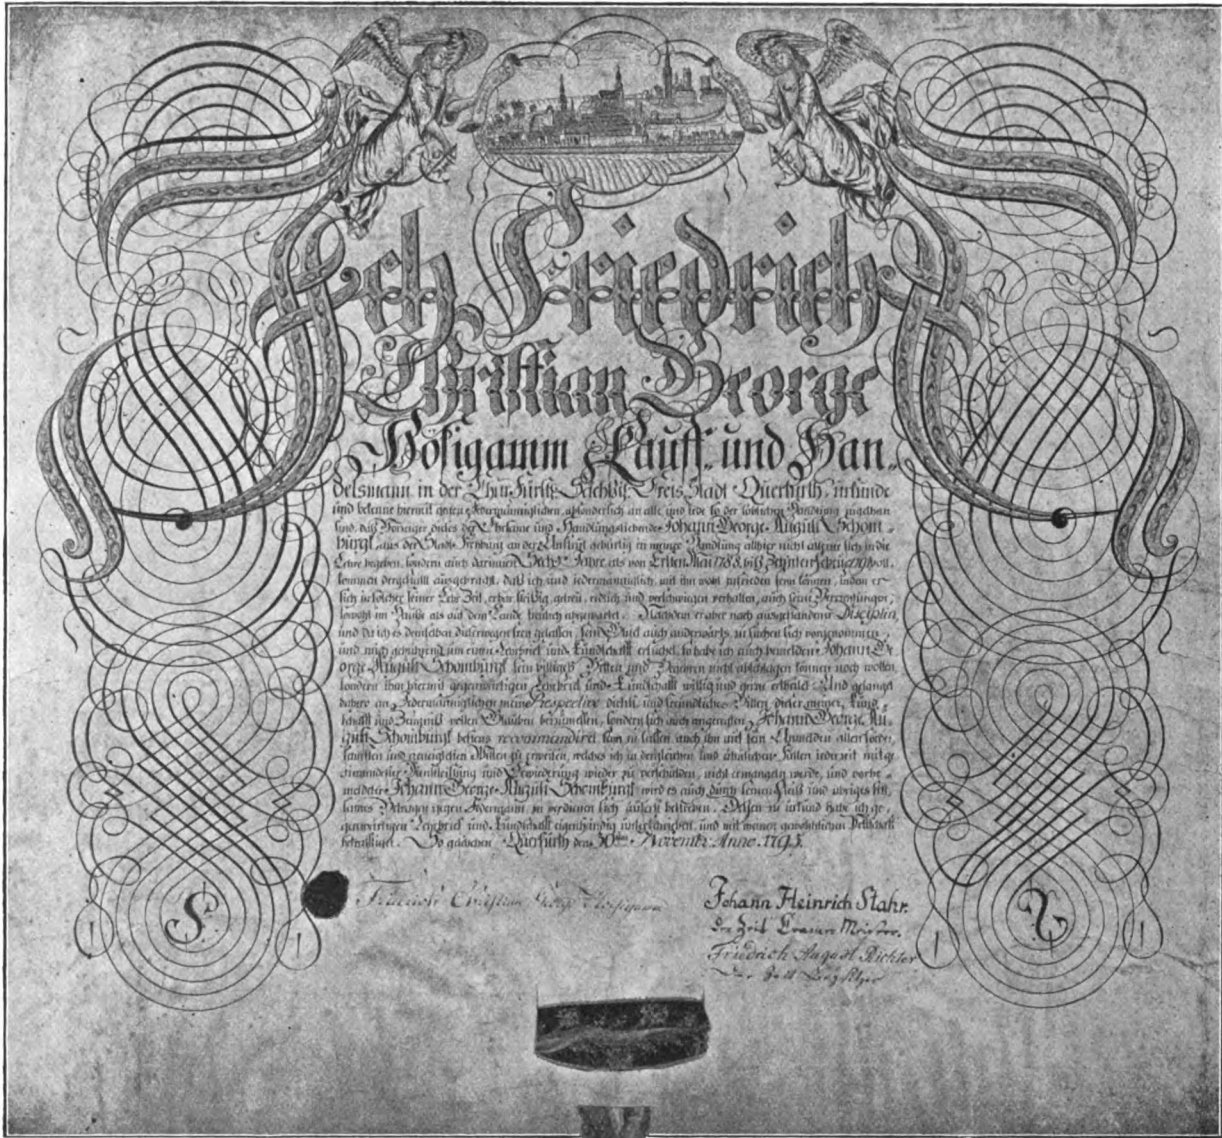 Ich Friedrich
Christian George
Hösigamm Kauff- und Han-
delsmann in der Chur Fürstl. Sächßis. Creis Stadt Querfurth, urkunde
und bekenne hiermit gegen Jedermänniglichen, absonderlich an alle und jede so der löblichen Handlung zugethan
sind, daß Vorzeiger dieses der Ehrsame und Handlungsliebende Johann George August Schom-
burgk aus der Stadt Freyburg an der Unstrut gebürtig in meine Handlung allhier nicht alleine sich in die
Lehre begeben, sondern auch darinnen Sechs Jahre als von Ersten Mai 1788. biß
kommen dergestalt ausgebracht, daß ich und jedermänniglich, mit ihm wohl zufrieden seyn können, indem er
sich in solcher seiner Lehr Zeit, erbar, fleißig, getreu, redlich und verschwiegen verhalten, auch seine Verrichtungen,
sowohl im Hause als auf dem Lande treulich abgewartet. Nachdem er aber nach ausgestandener Disciplin,
und da ich es demselben dieserwegen frey gelassen sein Glück auch anderwärts zu suchen sich vorgenommen,
und mich gebührend um einen Lehrbrief und Kundschafft ersuchet, so habe ich auch bemeldten Johann Ge-
orge August Schomburgk sein billiges Bitten und Begehren nicht abschlagen können noch wollen,
sondern ihm hiermit gegenwärtigen Lehrbrief und Kundschafft willig und gerne ertheilt. Und gelanget
dahero an Jedermänniglichen meine Respective dienst- und freundliches Bitten, dieser meiner Kund-
schafft und Zeugniß vollen Glauben beyzumessen, sondern sich auch angeregten Johann George Au-
gust Schomburgk bestens recommandiret seyn zu lassen, auch ihm auf sein Anmelden allen förder-
samsten und geneigtesten Willen zu erweisen, welches ich in dergleichen und ähnlichen Fällen jederzeit mit ge-
ziemender Dienstleistung und Erwiederung wieder zu verschulden, nicht ermangeln werde, und vorbe-
meldeter Johann George August Schomburgk wird es auch durch seinen Fleiß und übriges sitt-
sames Betragen gegen Jedermann, zu verdienen sich äuserst bestreben. Dessen zu urkund habe ich ge-
genwärtigen Lehrbrief und Kundschafft eigenhändig unterschrieben, und mit meinen gewöhnlichen Petschaft
bekräfftiget. So geschehen Querfurth den 30ten Novembr. Anno. 1795.
Friedrich Christian George Hösigamm
Johann Heinrich Stahr.
der Zeit Cramer Meister.
Friedrich August Richter
der Zeit